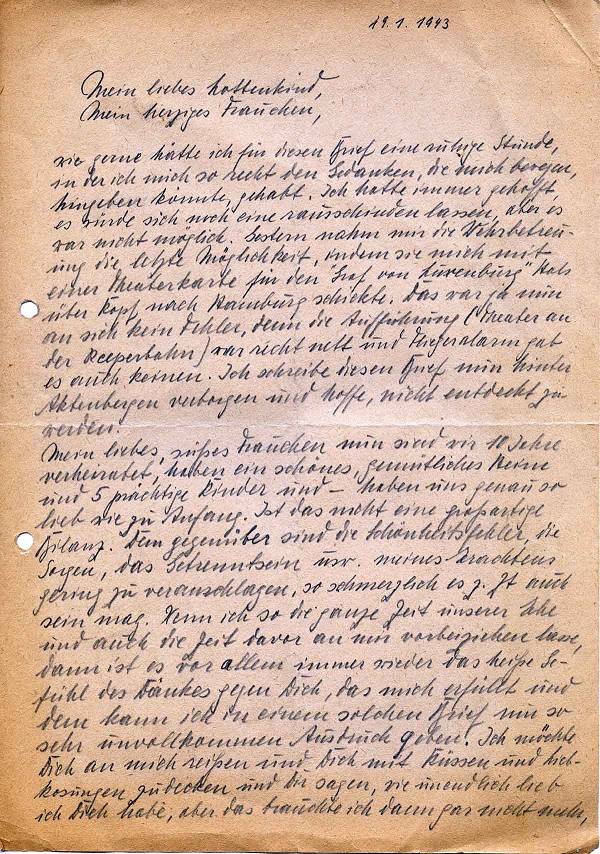 19.1.1943
Mein liebes Lottenkind,
Mein herziges Frauchen,
wie gerne hätte ich für diesen Brief eine ruhige Stunde,
in der ich mich so recht den Gedanken, die mich bewegen,
hingeben könnte, gehabt. Ich hatte immer gehofft,
es würde sich noch eine rausschinden lassen, aber es
war nicht möglich. Gestern nahm mir die Wehrbetreu-
ung die letzte Möglichkeit, indem sie mich mit
einer Theaterkarte für den "Graf von Luxenburg" Hals
über Kopf nach Hamburg schickte. Das war ja nun
an sich kein Fehler, denn die Aufführung (Theater an
der Reeperbahn) war recht nett und Fliegeralarm gab
es auch keinen. Ich schreibe diesen Brief nun hinter
Aktenbergen verborgen und hoffe, nicht entdeckt zu
werden.
Mein liebes, süßes Frauchen nun sind wir 10 Jahre
verheiratet, haben ein schönes, gemütliches Heim
und 5 prächtige Kinder und – haben uns genau so
lieb wie zu Anfang. Ist das nicht eine großartige
Bilanz. Dem gegenüber sind die Schönheitsfehler, die
Sorgen, das Getrenntsein usw. meines Erachtens
gering zu veranschlagen, so schmerzlich es z. Zt auch
sein mag. Wenn ich so die ganze Zeit unserer Ehe
und auch die Zeit davor an mir vorbeiziehen lasse,
dann ist es vor allem immer wieder das heiße Ge-
fühl des Dankes gegen Dich, das mich erfüllt und
dem kann ich in einem solchen Brief nur so
sehr unvollkommen Ausdruck geben. Ich möchte
Dich an mich reißen und Dich mit Küssen und Lieb-
kosungen zudecken und Dir sagen, wie unendlich lieb
ich Dich habe, aber das brauchte ich dann gar nicht mehr,